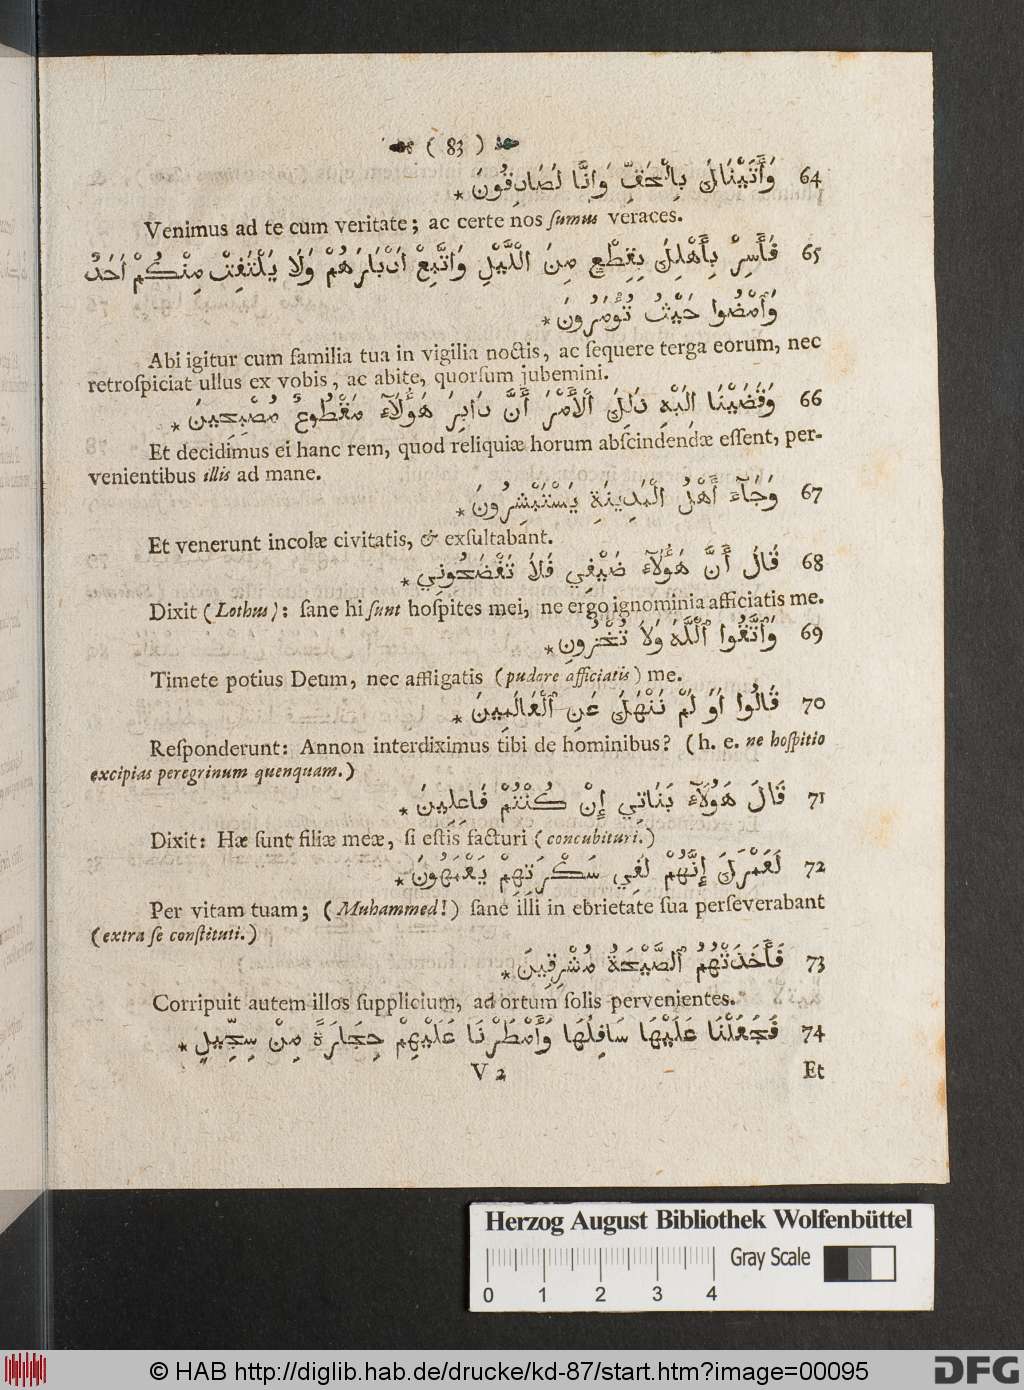 ( 83 )
64 وَأَتَيْنَاكَ بِالْحَقِّ وَإِنَّا لَصَادِقُونَ *
Venimus ad te cum veritate; ac certe nos ſumus veraces.
65 فَأَسِرْ بِأَهْلِكَ بِقِطْعٍ مِنَ الْلَّيْلِ وَاتَّبِعْ أَدْبَارَهُمْ وَلَا يَلْتَفِتْ مِنْكُمْ أَحَدٌ
وَٱمْضُوا حَيْثُ تُؤْمَرُونَ *
Abi igitur cum familia tua in vigilia noctis, ac ſequere terga eorum, nec
retroſpiciat ullus ex vobis, ac abite, quorſum jubemini.
66 وَقَضَيْنَا إِلَيْهِ ذَلِكَ ٱلْأَمْرَ أَنَّ دَابِرَ هَؤُلَآءِ مَقْطُوعٌ مُصْبِحِينَ *
Et decidimus ei hanc rem, quod reliquiæ horum abſcindendæ eſſent, per-
venientibus illis ad mane.
67 وَجَآءَ أَهْلُ الْمَدِينَةِ يَسْتَبْشِرُونَ *
Et venerunt incolæ civitatis, & exſultabant.
68 قَالَ أَنَّ هَؤُلَآءِ ضَيْفِي فَلَا تَفْضَحُونِي *
Dixit (Lothus): ſane hi ſunt hoſpites mei, ne ergo ignominia afficiatis me.
69 وَٱتَّقُوا ٱللَّهَ وَلَا تُخْزُونِ *
Timete potius Deum, nec affligatis (pudore afficiatis) me.
70 قَالُوا أَوَ لَمْ نَنْهَكَ عَنِ ٱلْعَالَمِينَ *
Reſponderunt: Annon interdiximus tibi de hominibus? (h. e. ne hoſpitio
excipias peregrinum quenquam.)
71 قَالَ هَؤُلَآءِ بَنَاتِي إِنْ كُنْتُمْ فَاعِلِينَ *
Dixit: Hæ ſunt filiæ meæ, ſi eſtis facturi (concubituri.)
72 لَعَمْرَكَ إِنَّهُمْ لَفِي سَكْرَتِهِمْ يَعْمَهُونَ *
Per vitam tuam; (Muhammed!) ſane illi in ebrietate ſua perſeverabant
(extra ſe conſtituti.)
73 فَأَخَذَتْهُمُ ٱلصَّيْحَةُ مُشْرِقِينَ *
Corripuit autem illos ſupplicium, ad ortum ſolis pervenientes.
74 فَجَعَلْنَا عَلَيْهَا سَافِلُهَا وَأَمْطَرْنَا عَلَيْهِمْ حِجَارَةً مِنْ سِجِّيلٍ *
V 2 Et
Herzog August Bibliothek Wolfenbüttel
Gray Scale
0 1 2 3 4
© HAB http://diglib.hab.de/drucke/kd-87/start.htm?image=00095
DFG